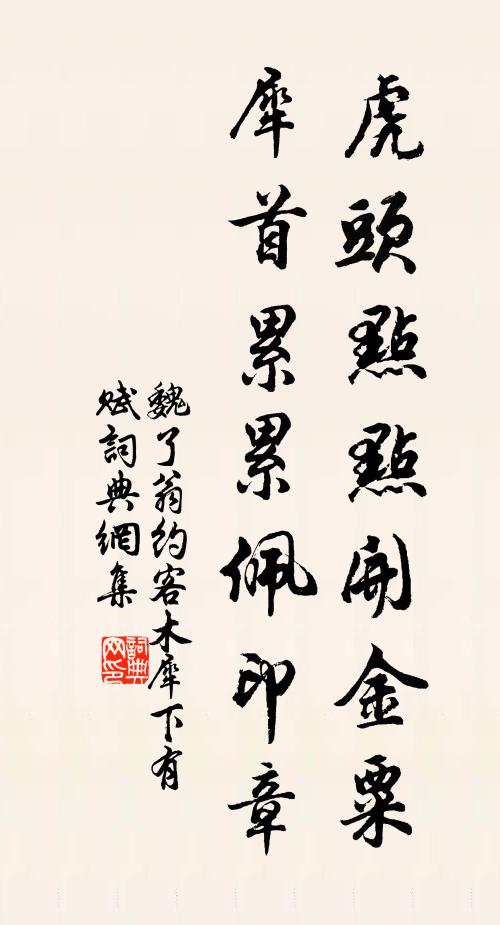 虎頭點點開金粟
犀首累累佩印章
魏了翁約客木犀下有
賦詞典網集
詞典網印